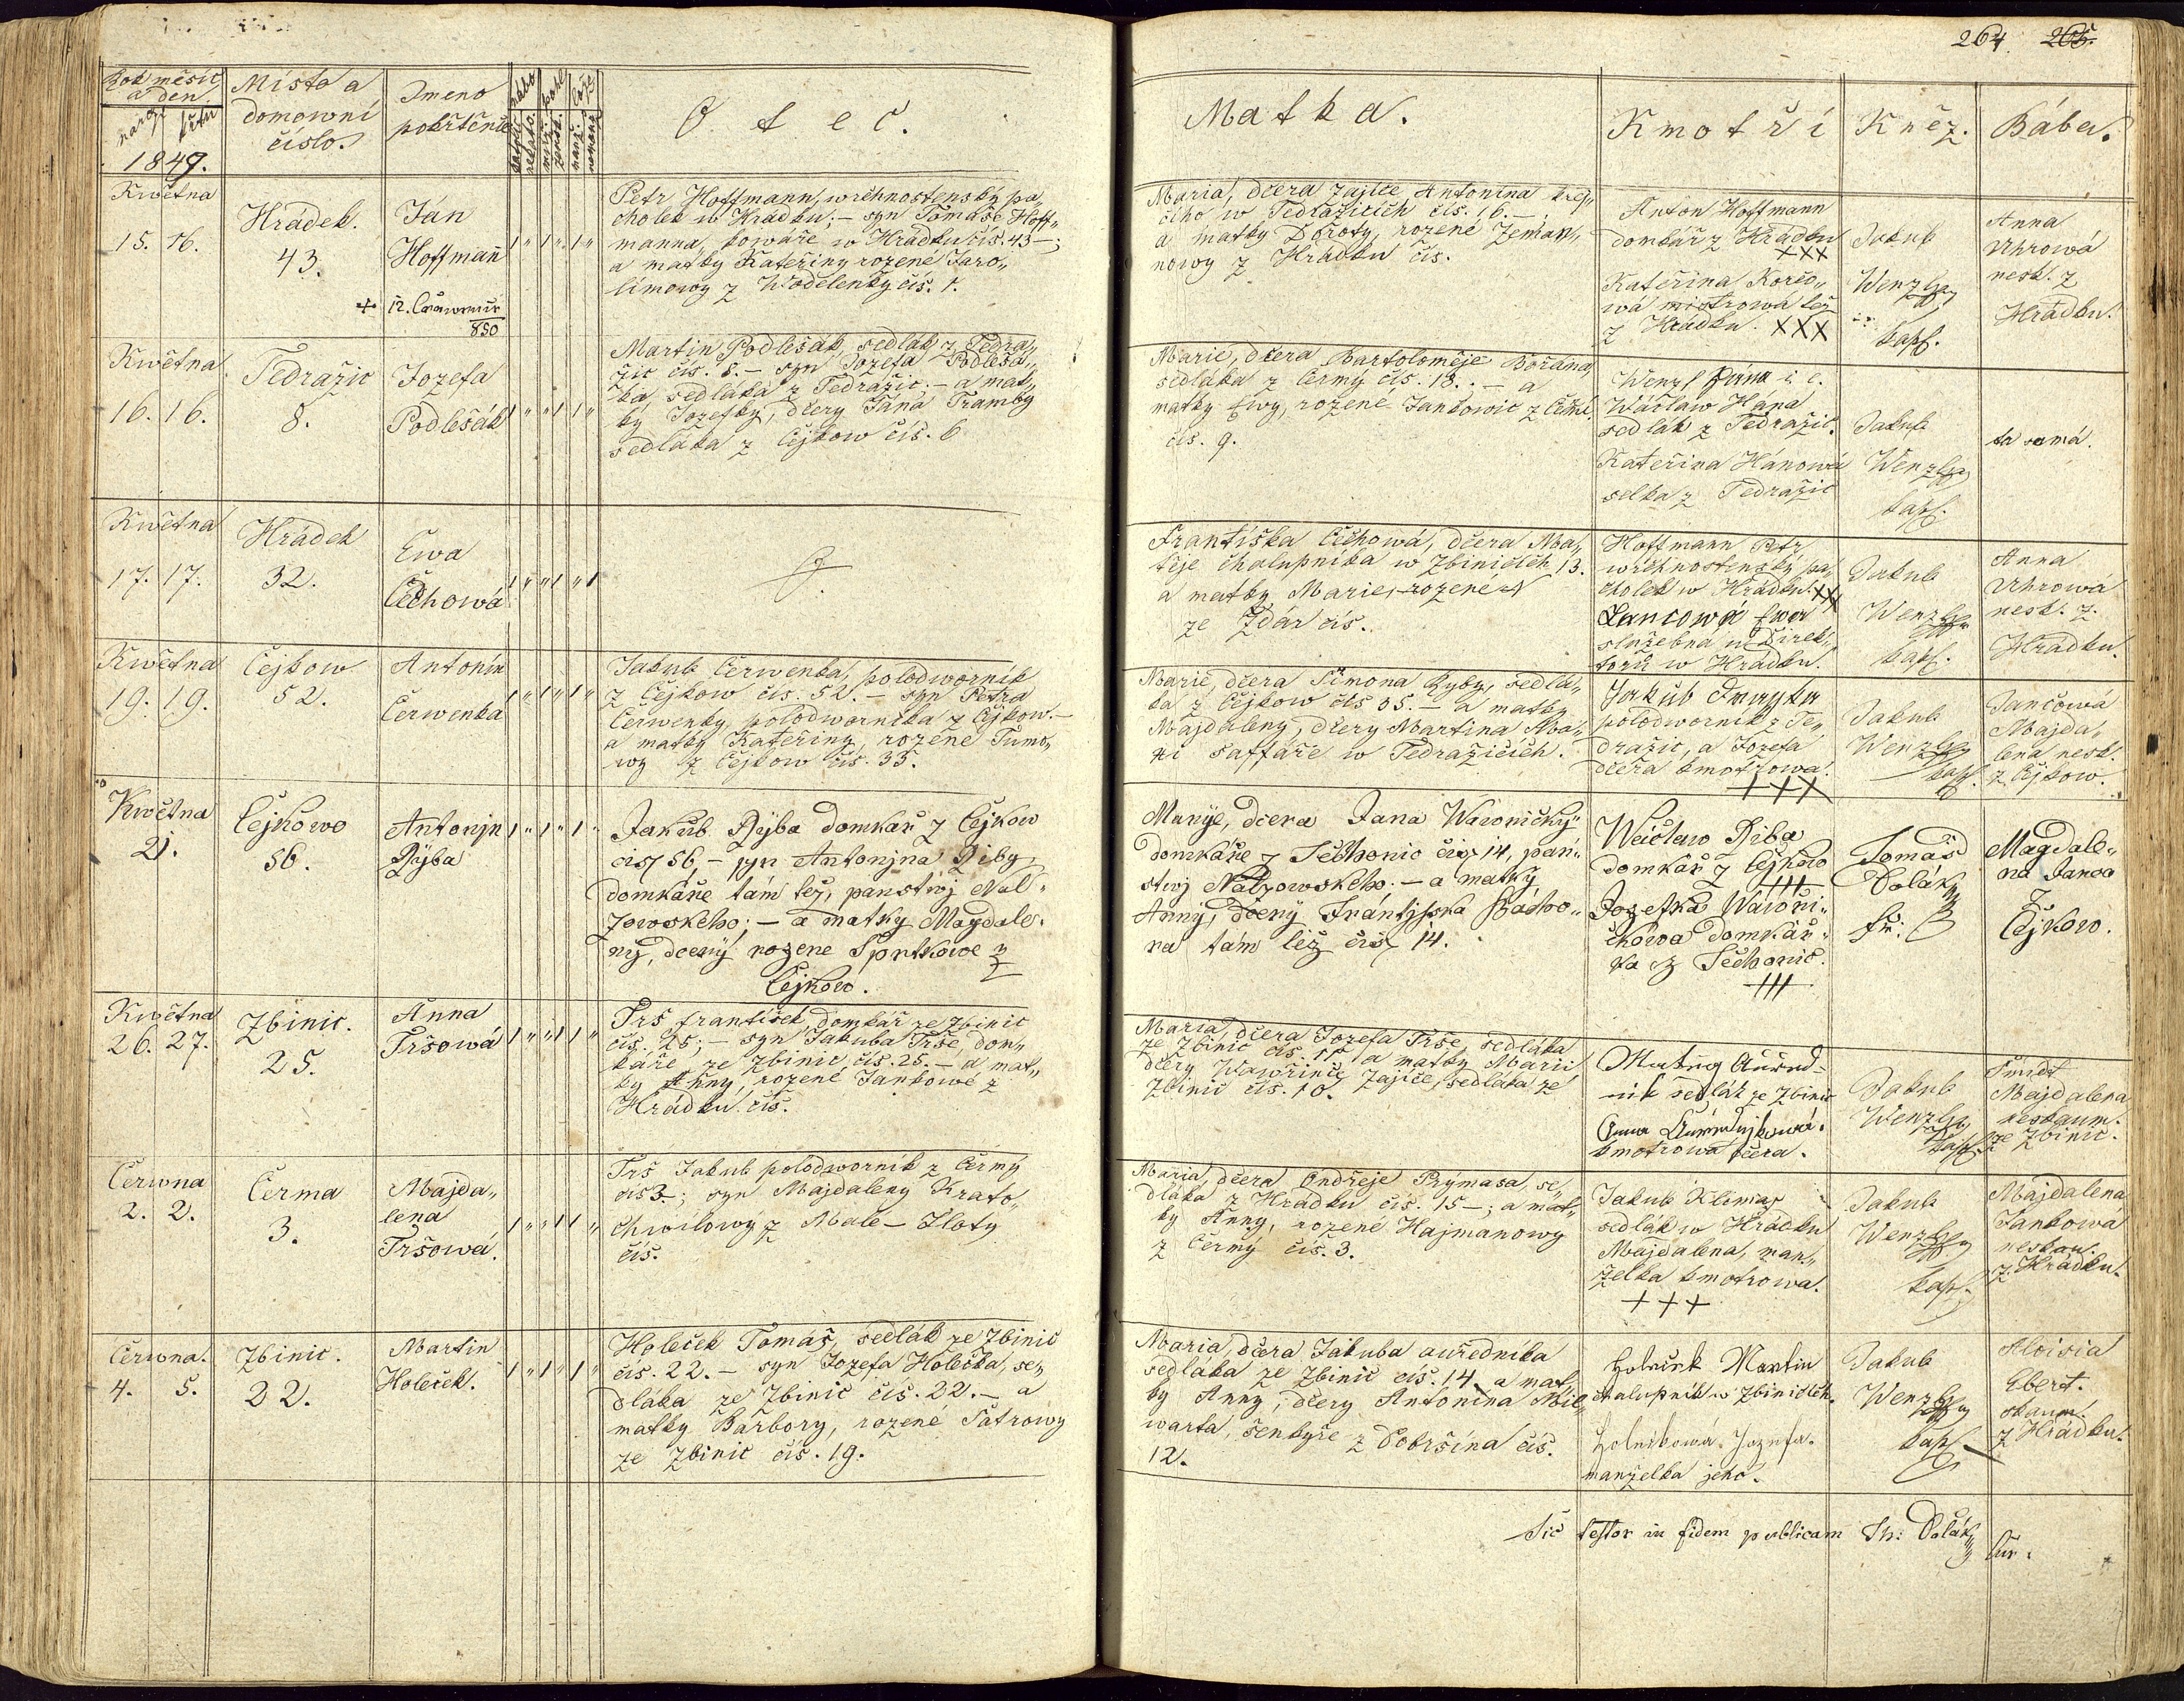 264 265.
Rok měsíc
a den.
naroz. křtu
1849.
Místo a
domowní
číslo.
Jmeno
pokřtěnce
O t e c.
Matka.
Kmotři
Kněz.
Bába.
Května
15. 16.
Hrádek.
43.
Ján
Hoffmañ
+ 12.
850
Petr Hoffmann, wrchnostenský pa„
cholek w Hrádku; – syn Tomáše Hoff„
manna, kowáře w Hrádku čís. 43 –;
a matky Kateřiny rozené Jaro„
límowy z Wodelenky čís. 1.
Maria, dčera Zajíce Antonína krej„
čího w Tedražicích čís. 16. –;
a matky Doroty, rozené Zeman„
nowy z Hrádku čís.
Anton Hoffmann
domkář z Hrádku
XXX
Kateřina Korco„
wá mistrowá též
z Hrádku. XXX
Jakub
Wenzl
kapl.
Anna
Uhrowá
nesk. z
Hrádku.
Května
16. 16.
Tedražic
8.
Jozefa
Podlešák
Martin Podlešák sedlák z Tedra„
žic čís. 8. – syn Jozefa Podlešá„
ka, sedláka z Tedražic. – a mat„
ky Jozefky, dčery Jána Tramby
sedláka z Čejkow čís. 6
Marie, dčera Bartoloměje Bořána,
sedláka z Čermý čís. 18. – a
matky Ewy, rozené Jankowic z Čermé
čís. 9.
Wenzl Hana i. e.
Wáclaw Hána
sedlák z Tedražic.
Kateřina Hánowá
selka z Tedražic
Jakub
Wenzl
kapl.
ta samá.
Května
17. 17.
Hrádek
32.
Ewa
Čechowá
Františka Čechowá, dčera Ma„
těje chalupníka w Zbiničích 13.
a matky Marie, rozené
ze Zdár čís.
Hoffmann Petr
wrchnostenský pa„
cholek w Hrádku. XXX
Lancowá Ewa
služebná u Direk„
torů w Hrádku.
Jakub
Wenzl
kapl.
Anna
Uhrowá
nesk. z.
Hrádku.
Května
19. 19.
Čejkow
52.
Antonín
Čerwenka
Jakub Čerwenka, polodworník
z Čejkow čís. 52. – syn Petra
Čerwenky, polodworníka z Čejkow. –
a matky Kateřiny, rozené Tumo„
wy z Čejkow čís. 33.
Marie dčera Šimona Ryby, sedlá„
ka z Čejkow čís 35. – a matky
Majdaleny, dčery Martina Ma„
ři šaffáře w Tedražicích.
Jakub
polodworník z Te„
dražic, a Jozefa
dčera kmotrowa.
+++
Jakub
Wenzl
kapl.
Jančowá
Majda„
lena nesk.
z Čejkow.
Května
21.
Čejkowo
56.
Antonjn
Rÿba
Jakub Rÿba domkař z Čejkow
čis 56, – syn Antonjna Riby,
domkáře tám též, panstwj Nal„
žowskeho; – a matky Magdale„
ny, dcerÿ rozene Spntkowe z
Čejkow.
Marye, dcera Jana Wawřičký
domkáře z Těchonic čis 14, pan„
stwj Nalžowského. – a matky
Anny, dcerý Frántjsska
ra tám též čis 14.
Wacslaw Riba
domkař z Čejkow
+++
Jozefka Wawři„
čkowa domkař„
ka z Těchonic.
+++
Tomáš
Dolák
fr:
Magdale„
na Janca
z
Čejkow.
Května
26. 27.
Zbinic.
25.
Anna
Tršowá
Trš František, domkář ze Zbinic
čís. 25; – syn Jakuba Trše, dom„
káře ze Zbinic čís. 25. – a mat„
ky Anny, rozené Jankowé z
Hrádku. čís.
Maria, dčera Jozefa Trše, sedláka
ze Zbinic čís. 11 a matky Marii
dčery Wawřince Zajíce, sedláka ze
Zbinic čís. 10.
Matieg Auřed-
nik sedlák ze Zbinic
Anna
kmotrowá dčera.
Jakub
Wenzl
kapl.
Šmidt
Majdalena
neskaum.
ze Zbinic.
Čerwna
2. 2.
Čerma
3.
Majda„
lena
Tršowá.
Trš Jakub polodworník z Čermý
čís 3. –; syn Majdaleny Krato„
chwílowý z Malé – Zloty
čís.
Maria, dčera Ondřeje Prýmasa, se„
dláka z Hrádku čís. 15 –; a mat„
ky Anny, rozené Hajmanowy
z Čermý čís. 3.
Jakub Klimeš
sedlák w Hrádku
Majdalena, man„
želka kmotrowa.
+++
Jakub
Wenzl
kapl.
Majdalena
Jankowá
neskau.
z Hrádku.
Čerwna.
4. 5.
Zbinic.
22.
Martin
Holeček.
Holeček Tomáš, sedlák ze Zbinic
čís. 22. – syn Jozefa Holečka, se„
dláka ze Zbinic čís. 22. – a
matky Barbory, rozené Pátrowy
ze Zbinic čís. 19.
Maria, dčera Jakuba auředníka
sedláka ze Zbinic čís. 14. a mat„
ky Anny, dčery Antonína Mil„
warta, šenkýře z Dobršína čís.
12.
Holeček Martin
chalupník w Zbiničích.
Holečkowá Jozefa.
manželka jeho.
Jakub
Wenzl
kapl.
Aloisia
Ebert.
skaum.
z Hrádku.
Sic testor in fidem publicam Th: Dolák